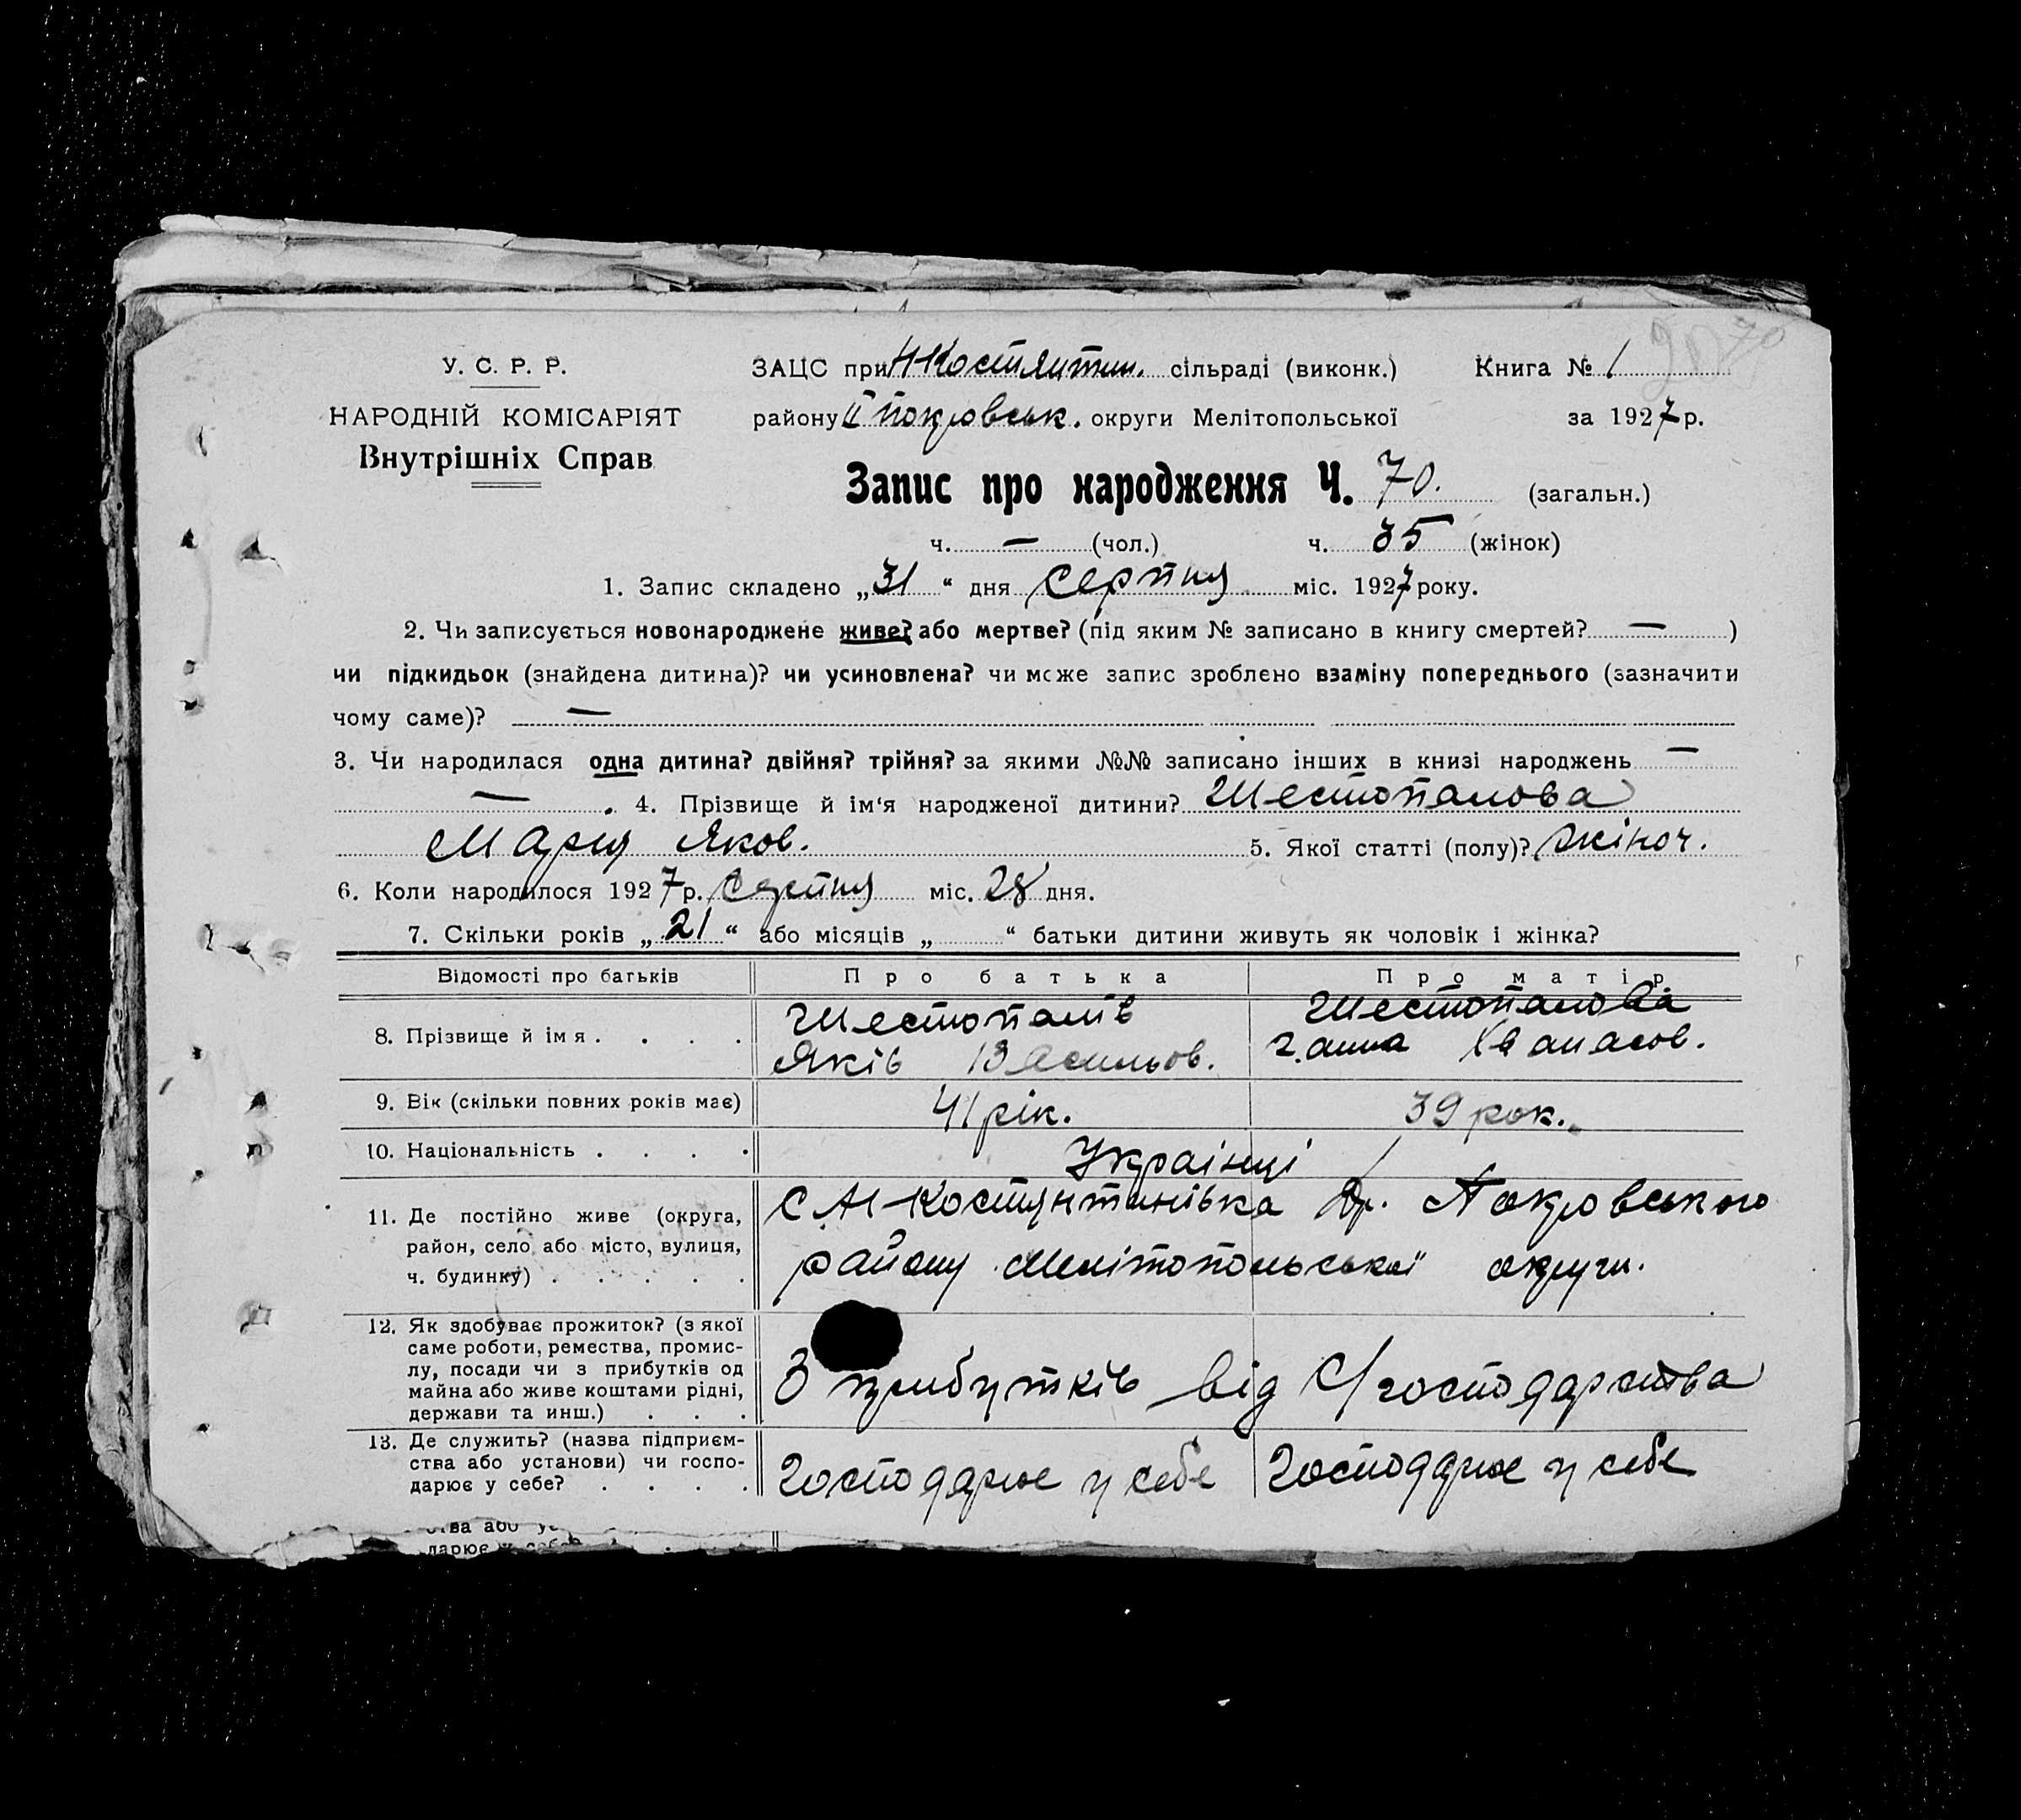 У. С. Р. Р.
НАРОДНІЙ КОМІСАРІЯТ
Внутрішніх Справ
ЗАЦС при Н-Костянтин. сільраді (виконк.) Книга № 1
району ІІ Покровськ. округи Мелітопольської за 1927 р.
Запис про народження Ч. 70. (загальн.)
ч. — (чол.) ч. 35 (жінок)
1. Запис складено „31“ дня серпня міс. 1927 року.
2. Чи записується новонароджене живе? або мертве? (під яким № записано в книгу смертей? — )
чи підкидьок (знайдена дитина)? чи усиновлена? чи може запис зроблено взаміну попереднього (зазначити
чому саме)? —
3. Чи народилася одна дитина? двійня? трійня? за якими №№ записано інших в книзі народжень —
— . 4. Прізвище й ім‘я народженої дитини? Шестопалова
Марія Яков. 5. Якої статті (полу)? жіноч.
6. Коли народилося 1927 р. серпня міс. 28 дня.
7. Скільки років „21“ або місяців „ “ батьки дитини живуть як чоловік і жінка?
Відомості про батьків Про батька Про матір
8. Прізвище й імя . . . . Шестопалів Яків Васильов. Шестопалова Ганна Афанасов.
9. Вік (скільки повних років має) 41 рік. 39 рок.
10. Національність . . . . Українці
11. Де постійно живе (округа, С. Н-Костянтинівка Др. Покровського
район, село або місто, вулиця, району Мелітопольської округи.
ч. будинку) . . . . .
12. Як здобуває прожиток? (з якої
саме роботи, ремества, промис-
лу, посади чи з прибутків од
майна або живе коштами рідні, З прибутків від С/господарства
держави та инш.) . . .
13. Де служить? (назва підприєм-
ства або установи) чи госпо- Господарює у себе Господарює у себе
дарює у себе? . . . .
ства або ус
дарює у себе?